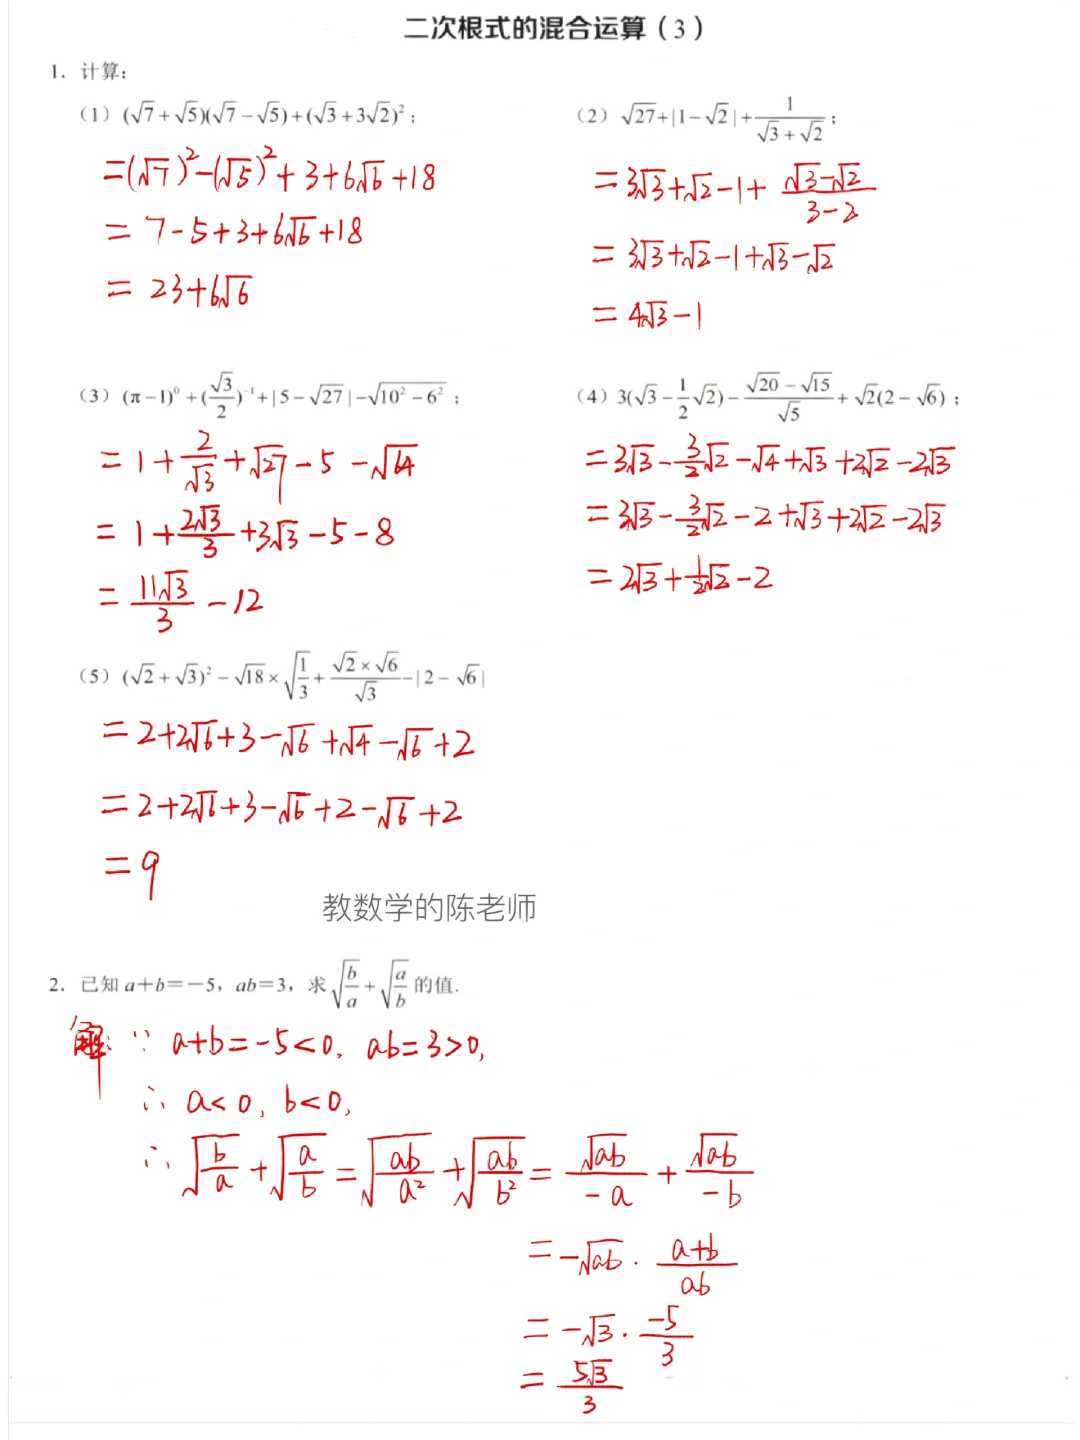 二次根式的混合运算（3）
1. 计算：
（1）(√7+√5)(√7−√5)+(√3+3√2)²；
=(√7)²−(√5)²+3+6√6+18
=7−5+3+6√6+18
=23+6√6
（2）√27+|1−√2|+1/(√3+√2)；
=3√3+√2−1+(√3−√2)/(3−2)
=3√3+√2−1+√3−√2
=4√3−1
（3）(π−1)⁰+(√3/2)⁻¹+|5−√27|−√(10²−6²)；
=1+2/√3+√27−5−√64
=1+2√3/3+3√3−5−8
=11√3/3−12
（4）3(√3−1/2√2)−(√20−√15)/√5+√2(2−√6)；
=3√3−3/2√2−√4+√3+2√2−2√3
=3√3−3/2√2−2+√3+2√2−2√3
=2√3+1/2√2−2
（5）(√2+√3)²−√18×√(1/3)+(√2×√6)/√3−|2−√6|
=2+2√6+3−√6+√4−√6+2
=2+2√6+3−√6+2−√6+2
=9
教数学的陈老师
2. 已知a+b=−5，ab=3，求√(b/a)+√(a/b)的值.
解：∵ a+b=−5<0, ab=3>0,
∴ a<0, b<0,
∴ √(b/a)+√(a/b)=√(ab/a²)+√(ab/b²)=√ab/−a+√ab/−b
=−√ab·(a+b)/ab
=−√3·−5/3
=5√3/3